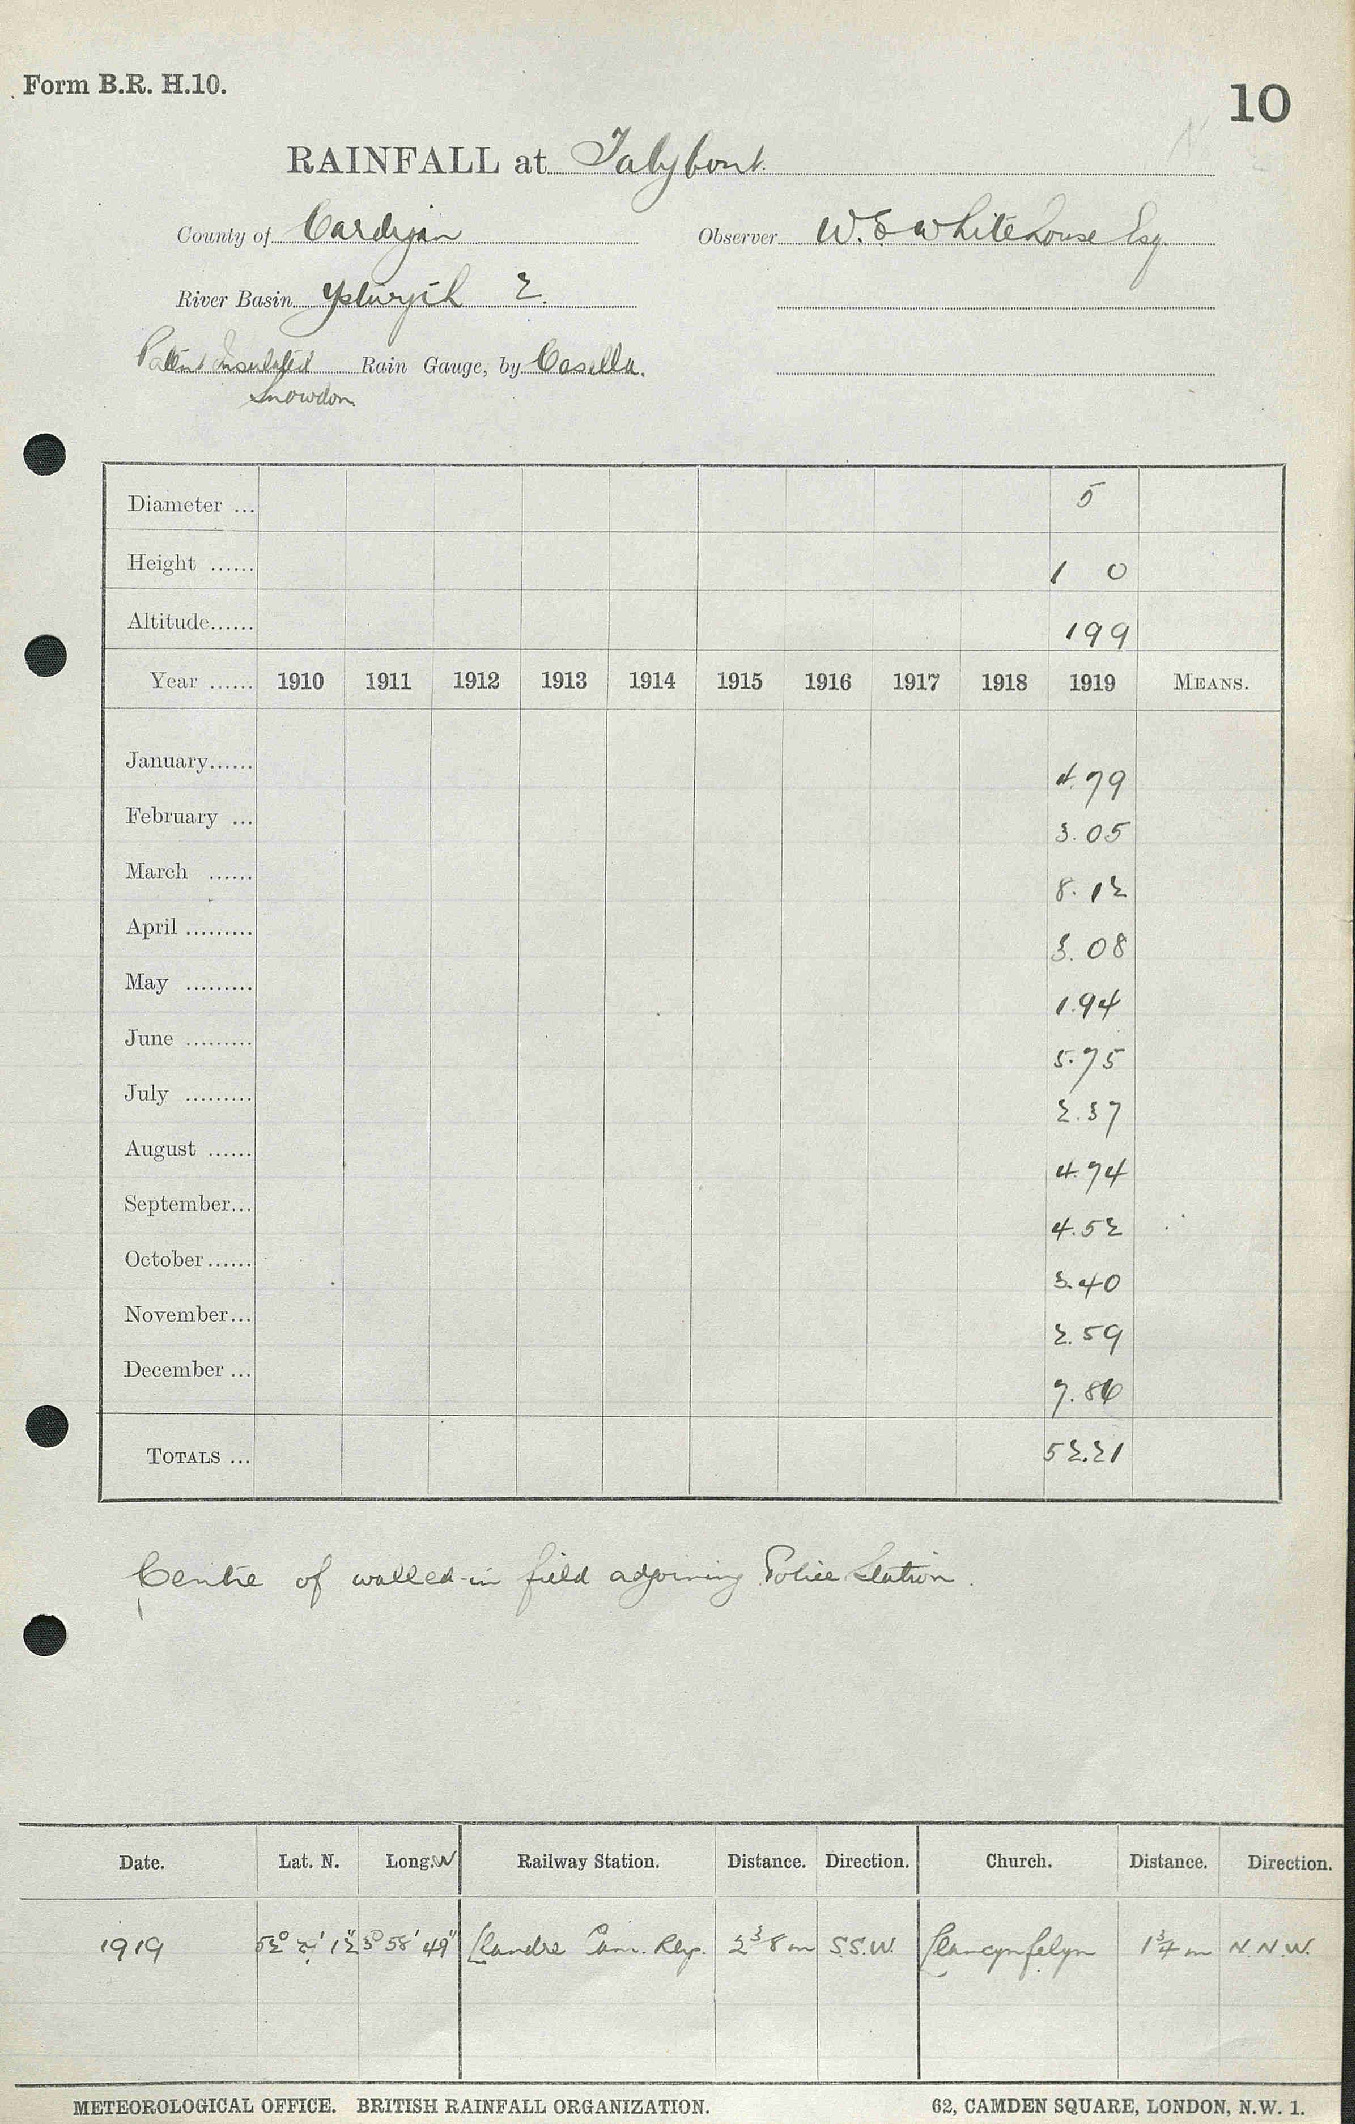 Form B.R. H.10.
10
RAINFALL at Talybont.
County of Cardigan Observer W. E Whitehouse Esq
River Basin Ystwyth
Patent Insulated Rain Gauge, by Casella.
Snowdon
Diameter ... 5
Height ...... 1 0
Altitude...... 199
Year ...... 1910 1911 1912 1913 1914 1915 1916 1917 1918 1919 MEANS.
January...... 4.79
February ... 3.05
March ...... 8.12
April ......... 3.08
May ......... 1.94
June ......... 5.75
July ......... 2.37
August ...... 4.74
September... 4.52
October...... 3.40
November... 2.59
December ... 7.86
TOTALS ... 52.21
Centre of walled-in field adjoining Police Station.
Date. Lat. N. Long. W Railway Station. Distance. Direction. Church. Distance. Direction.
1919 52° 12" 3° 58' 49" Llandre Cam. Rly. 2 3/8 m S.S.W. Llancynfelyn 1 3/4 m N.N.W.
METEOROLOGICAL OFFICE. BRITISH RAINFALL ORGANIZATION. 62, CAMDEN SQUARE, LONDON, N.W. 1.